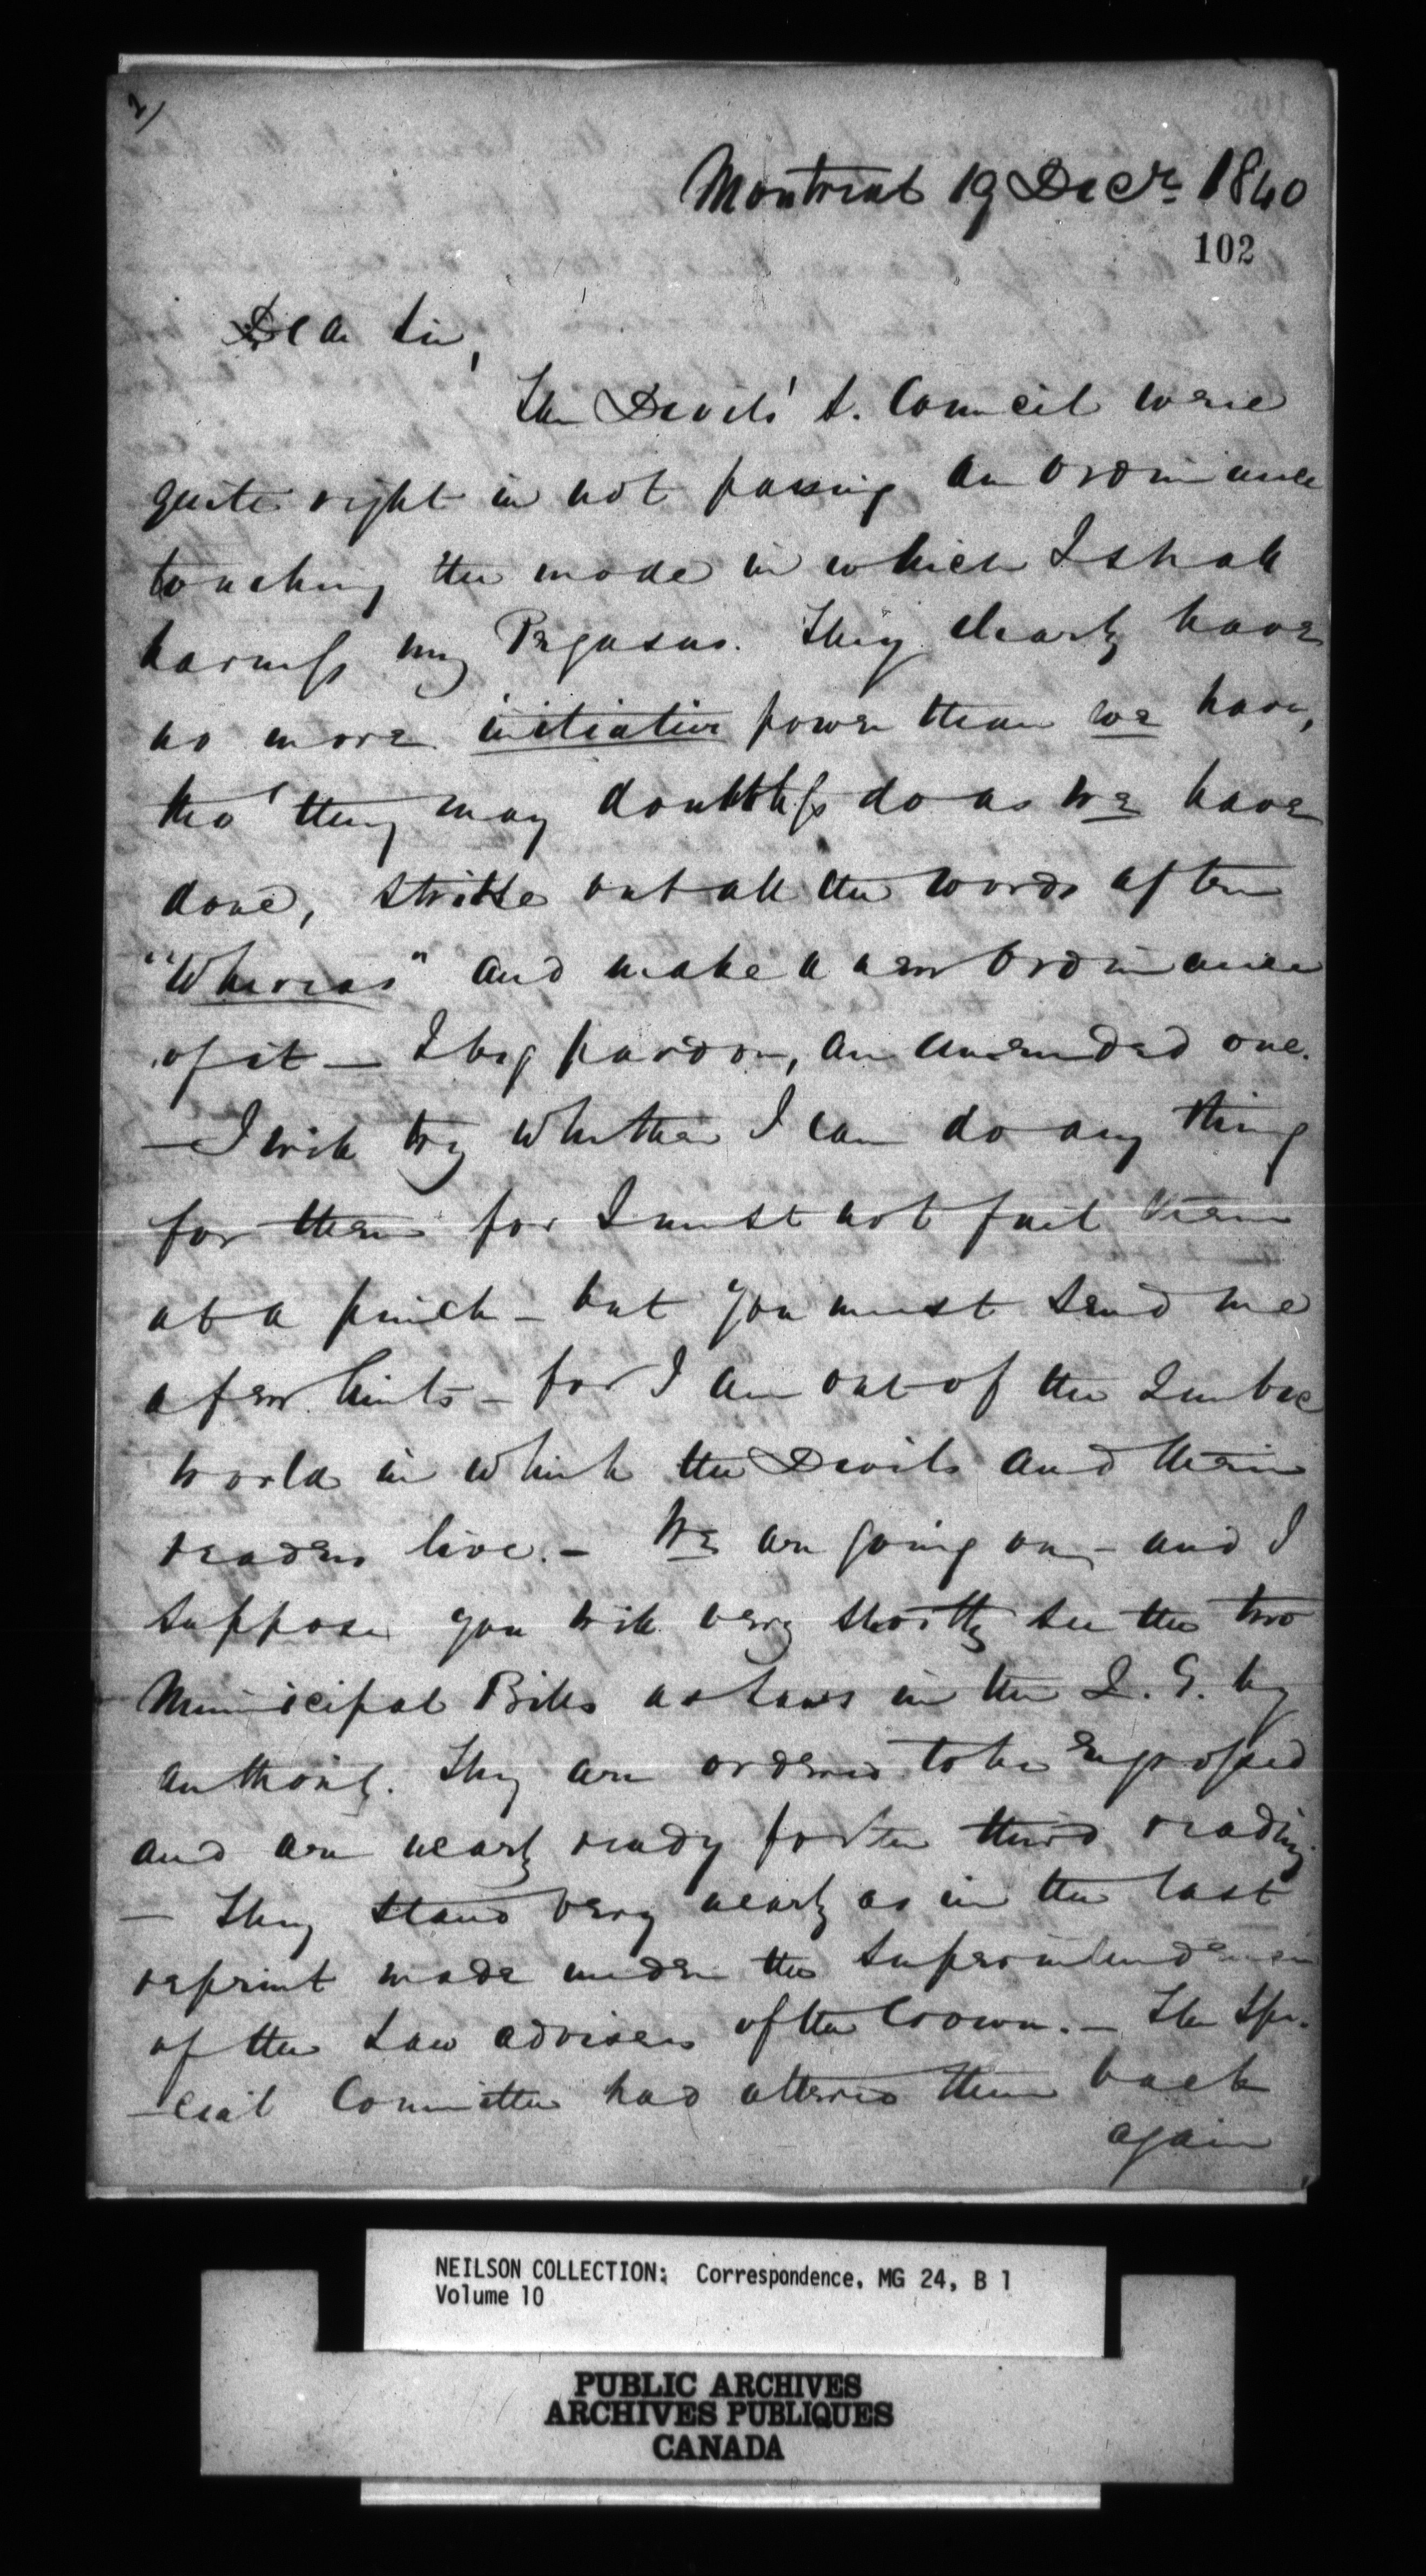 2/
Montreal 19 Decr. 1840
102
Dear Sir,
The Devils' S. Council were
quite right in not passing an Ordinance
touching the mode in which I shall
harness my Pegasus. They clearly have
no more initiative power than we have,
tho' they may doubtless do as we have
done, strike out all the words after
"Whereas" and make a new Ordinance
of it — I beg pardon, an amended one.
— I will try whether I can do any thing
for them for I must not fail them
at a pinch — but you must send me
a few hints — for I am out of the Quebec
world in which the Devils and their
readers live. — We are going on, — and I
suppose you will very shortly see the two
Municipal Bills as Laws in the Q. G. by
authority. They are ordered to be Engrossed
and are nearly ready for the third reading.
— They stand very nearly as in the last
reprint made under the Superintendence
of the Law advisers of the Crown. — The Spe-
-cial Committee had altered them back
again
NEILSON COLLECTION: Correspondence, MG 24, B 1
Volume 10
PUBLIC ARCHIVES
ARCHIVES PUBLIQUES
CANADA